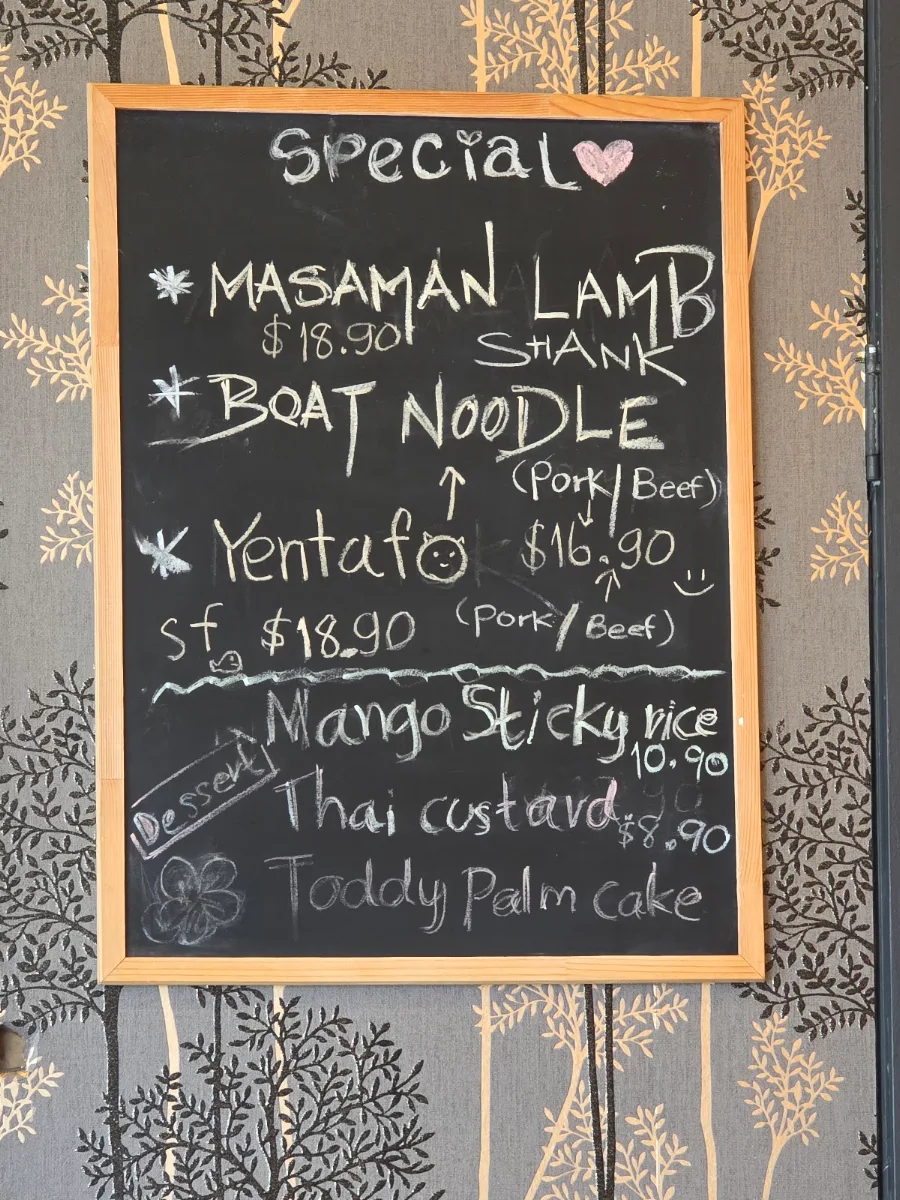 Special
* MASAMAN LAMB
$18.90 SHANK
* BOAT NOODLE
(Pork/Beef)
* Yentafo $16.90
sf $18.90 (Pork/Beef)
Mango Sticky rice
10.90
Dessert
Thai custard $8.90
Toddy Palm cake